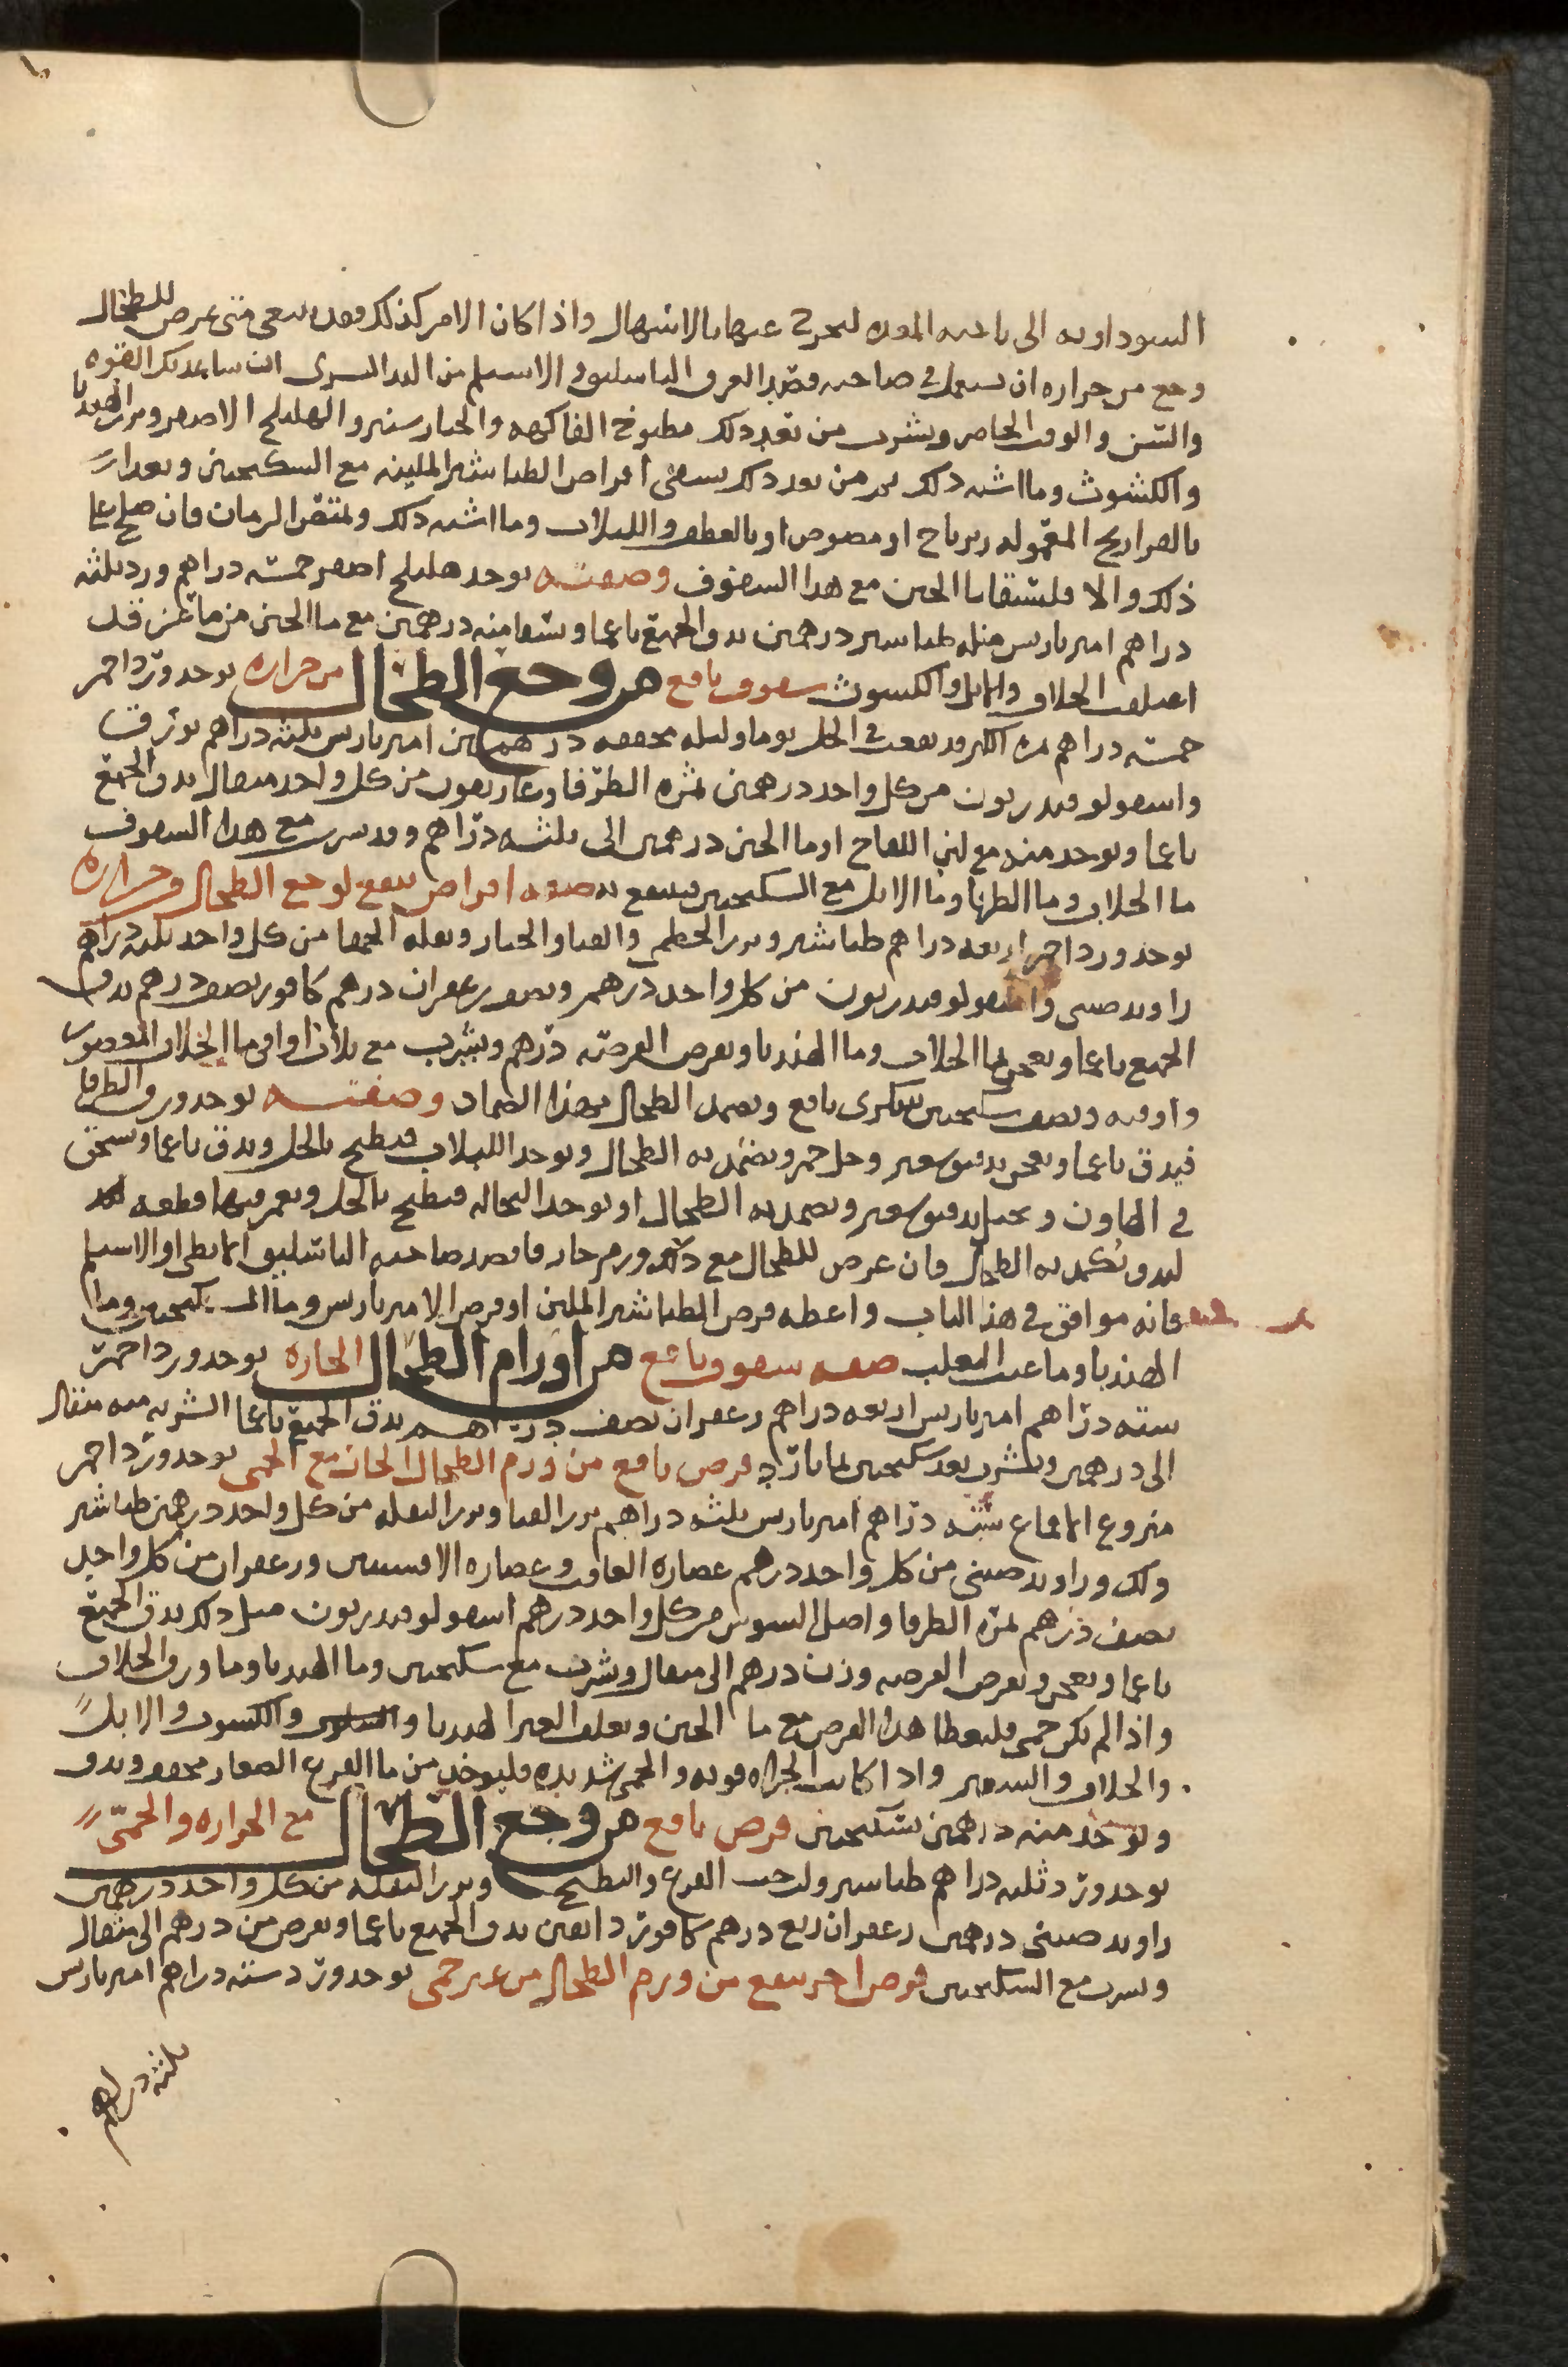 السوداويه الى ناحيه المعده لتخرج عنها بالاسهال واذا كان الامر كذلك فقد ينبغي متى عرض للطحال
وجع من حراره ان يستعمل في صاحبه فصد العرق الباسليق او الاسيلم من اليد اليسرى ان ساعدتك القوه
والسن والوقت الحاضر ويشرب من بعد ذلك مطبوخ الفاكهه والخيارشنبر والهليلج الاصفر وبزر الهندبا
والكشوث وما اشبه ذلك ثم من بعد ذلك يسقى اقراص الطباشير الملينه مع السكنجبين ويغدا
بالفراريج المعموله زيرباج او مصوص او بالقطف واللبلاب وما اشبه ذلك ويمتص الرمان فان صلح على
ذلك والا فليسقا ما الجبن مع هذا السفوف وصفته يوخذ هليلج اصفر خمسه دراهم ورد ثلثه
دراهم امير باريس مثله طباشير درهمين يدق الجميع ناعما ويسقا منه درهمين مع ما الجبن من ماعز قد
اعتلفت الخلاف والاثل والكشوث سفوف نافع من وجع الطحال من حراره يوخذ ورد احمر
خمسه دراهم بزر الكبر وقد نقعت في الخل يوما وليله مجففه درهمين امير باريس ثلثه دراهم بورق
واسقولوقندريون من كل واحد درهمين ثمره الطرفا وغاريقون من كل واحد مثقال يدق الجميع
ناعما ويوخذ منه مع لبن اللقاح او ما الجبن درهمين الى ثلثه دراهم وقد يشرب مع هذا السفوف
ما الخلاف وما الطرفا وما الاثل مع السكنجبين فينتفع به صفه اقراص ينفع لوجع الطحال وحراره
يوخذ ورد احمر اربعه دراهم طباشير وبزر الخطمى والقثا والخيار وبقله الحمقا من كل واحد ثلثه دراهم
راوند صيني واسقولوقندريون من كل واحد درهم ونصف زعفران درهم كافور نصف درهم يدق
الجميع ناعما ويعجن بما الخلاف وما الهندبا ويقرص القرصه درهم ويشرب مع ثلاث اواقي ما الخلاف المعصور
واوقيه ونصف سكنجبين سكرى نافع ويضمد الطحال بهذا الضماد وصفته يوخذ ورق الطرفا
فيدق ناعما ويعجن بدقيق شعير وخل خمر ويضمد به الطحال ويوخذ اللبلاب فيطبخ بالخل ويدق ناعما ويسحق
في الهاون ويخلط بدقيق شعير ويضمد به الطحال او يوخذ النخاله فيطبخ بالخل ويغمر فيها قطعه
لبد ويكمد به الطحال فان عرض للطحال مع ذلك ورم حار فافصد صاحبه الباسليق الابطى او الاسيلم
فانه موافق في هذا الباب واعطه قرص الطباشير الملين او قرص الامير باريس وما السكنجبين وما
الهندبا وما عنب الثعلب صفه سفوف نافع من اورام الطحال الحاره يوخذ ورد احمر
سته دراهم امير باريس اربعه دراهم زعفران نصف درهم يدق الجميع ناعما الشربه منه مثقال
الى درهمين ويشرب بعد سكنجبين بما بارد قرص نافع من ورم الطحال الحار مع الحمى يوخذ ورد احمر
منزوع الاقماع سته دراهم امير باريس ثلثه دراهم بزر القثا وبزر البقله من كل واحد درهمين طباشير
ولك وراوند صيني من كل واحد درهم عصاره الغافت وعصاره الافسنتين وزعفران من كل واحد
نصف درهم ثمره الطرفا واصل السوس من كل واحد درهم اسقولوقندريون مثل ذلك يدق الجميع
ناعما ويعجن ويقرص القرصه وزن درهم الى مثقال ويشرب مع سكنجبين وما الهندبا وما ورق الخلاف
واذا لم يكن حمى فليعطا هذا القرص مع ما الجبن ويعلف العنز الهندبا والكشوث والاثل
والخلاف والشعير واذا كانت الحراره قويه والحمى شديده فليوخذ من ما القرع الصغار مجفف ويدق
ويوخذ منه درهمين بسكنجبين قرص نافع من وجع الطحال مع الحراره والحمى
يوخذ ورد ثلثه دراهم طباشير ولب حب القرع والبطيخ وبزر البقله من كل واحد درهمين
راوند صيني درهمين زعفران ربع درهم كافور دانقين يدق الجميع ناعما ويقرص من درهم الى مثقال
ويشرب مع السكنجبين قرص اخر ينفع من ورم الطحال من غير حمى يوخذ ورد سته دراهم امير باريس
ثلثه دراهم